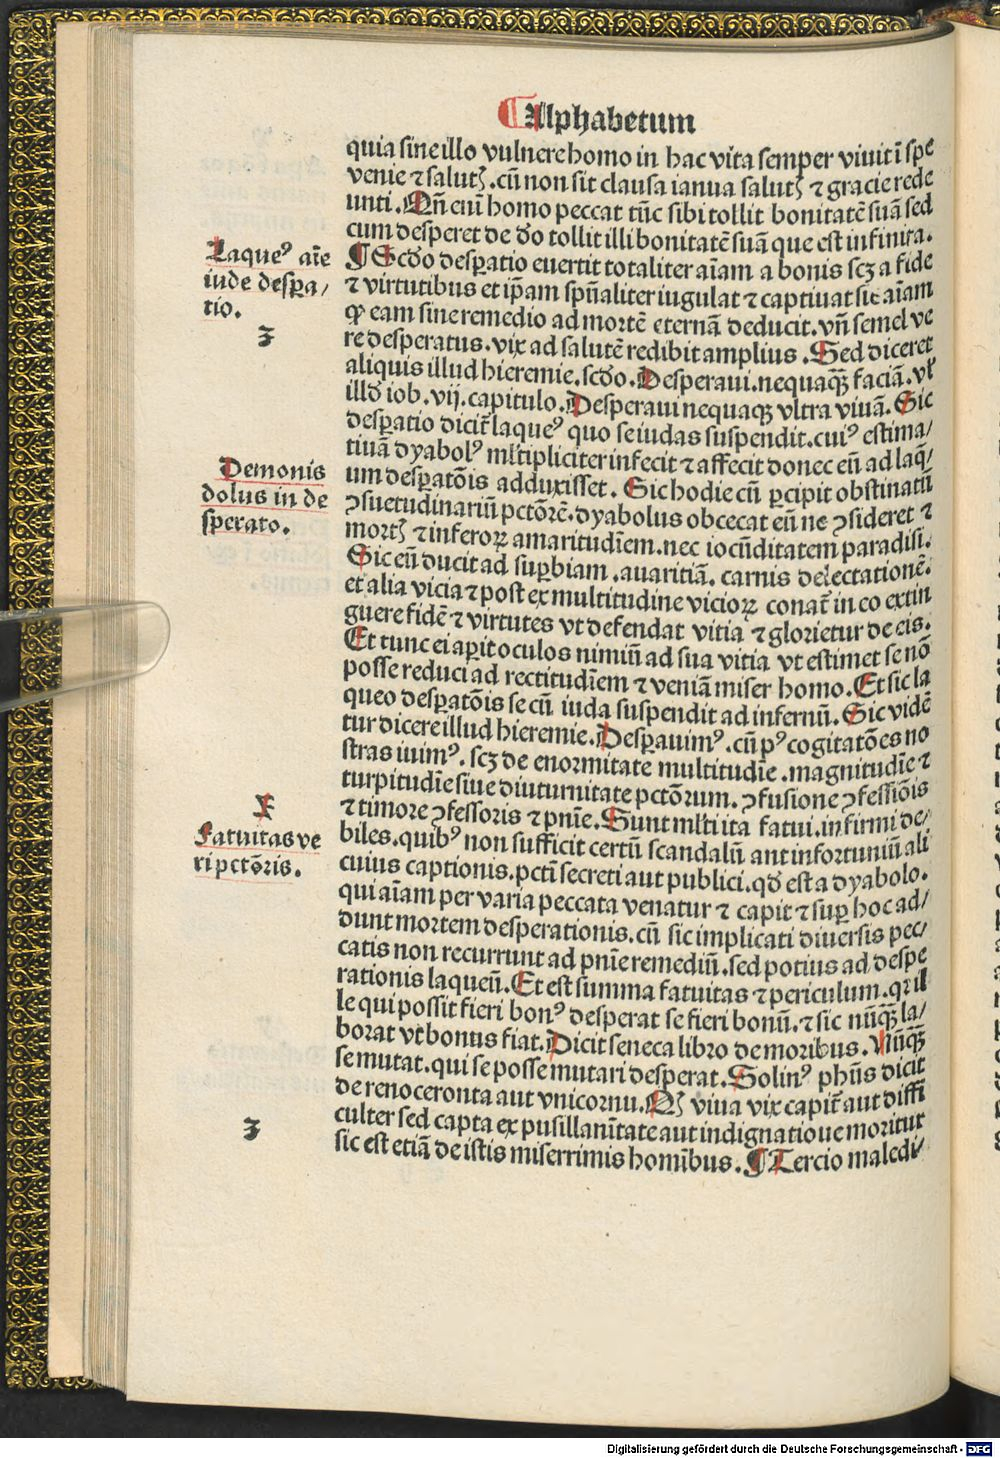 Alphabetum
quia sine illo vulnere homo in hac vita semper viuit ī spe
venie ⁊ saluťꝫ. cū non sit clausa ianua saluťꝫ ⁊ gracie rede
unti. Qñ enī homo peccat tūc sibi tollit bonitatē suā sed
cum desperet de do tollit illi bonitatē suā que est infinita.
¶ Scdo desꝑatio euertit totaliter aīam a bonis scꝫ a fide
⁊ virtutibus et ip̄am spūaliter iugulat ⁊ captiuat sic aīam
ꝙ eam sine remedio ad mortē eternā deducit. vñ semel ve
re desperatus. vix ad salutē redibit amplius. Sed diceret
aliquis illud hieremie. scdo. Desperaui. nequaꝙ̄ faciā. vľ
illd iob. vij. capitulo. Desperaui nequaqꝫ vltra viuā. Sic
desꝑatio dicit̄ laqueꝰ quo se iudas suspendit. cuiꝰ estima/
tiuā dyabolꝰ mľtipliciter infecit ⁊ affecit donec eū ad laq̄/
um desꝑatōis adduxisset. Sic hodie cū ꝑcipit obstinatū
ꝯsuetudinariū pctōrē. dyabolus obcecat eū ne ꝯsideret ⁊
morťꝫ ⁊ inferoꝝ amaritudīem. nec iocūditatem paradisi.
Sic eū ducit ad suꝑbiam. auaritiā. carnis delectationē.
et alia vicia ⁊ post ex multitudine vicioꝝ conat̄ in eo extin
guere fidē ⁊ virtutes vt defendat vitia ⁊ glorietur de eis.
Et tunc ei aꝑit oculos nimiū ad sua vitia vt estimet se nō
posse reduci ad rectitudīem ⁊ veniā miser homo. Et sic la
queo desꝑatōis se cū iuda suspendit ad infernū. Sic vidē
tur dicere illud hieremie. Desꝑauimꝰ. cū pꝰ cogitatōes no
stras iuimꝰ. scꝫ de enormitate multitudīe. magnitudīe ⁊
turpitudīe siue diuturnitate pctōrum. ꝯfusione ꝯfessiōis
⁊ timore ꝯfessoris ⁊ pnīe. Sunt mľti ita fatui. infirmi de/
biles. quibꝰ non sufficit certū scandalū aut infortuniū ali
cuius captionis. pcti secreti aut publici. qd est a dyabolo.
qui aīam per varia peccata venatur ⁊ capit ⁊ suꝑ hoc ad/
dunt mortem desperationis. cū sic implicati diuersis pec/
catis non recurrunt ad pnīe remediū. sed potius ad despe
rationis laqueū. Et est summa fatuitas ⁊ periculum. qꝛ il
le qui possit fieri bonꝰ desperat se fieri bonū. ⁊ sic nūꝙ̄ la/
borat vt bonus fiat. Dicit seneca libro de moribus. Nūꝙ̄
se mutat. qui se posse mutari desperat. Solinꝰ phūs dicit
de renoceronta aut vnicornu. Qꝫ viua vix capit̄ aut diffi
culter sed capta ex pusillanītate aut indignatione moritur
sic est etiā de istis miserrimis homībus. ¶ Tercio maledi/
Laqueꝰ aīe
iude desꝑa/
tio.
3
Demonis
dolus in de
sperato.
Fatuitas ve
ri pctōris.
3